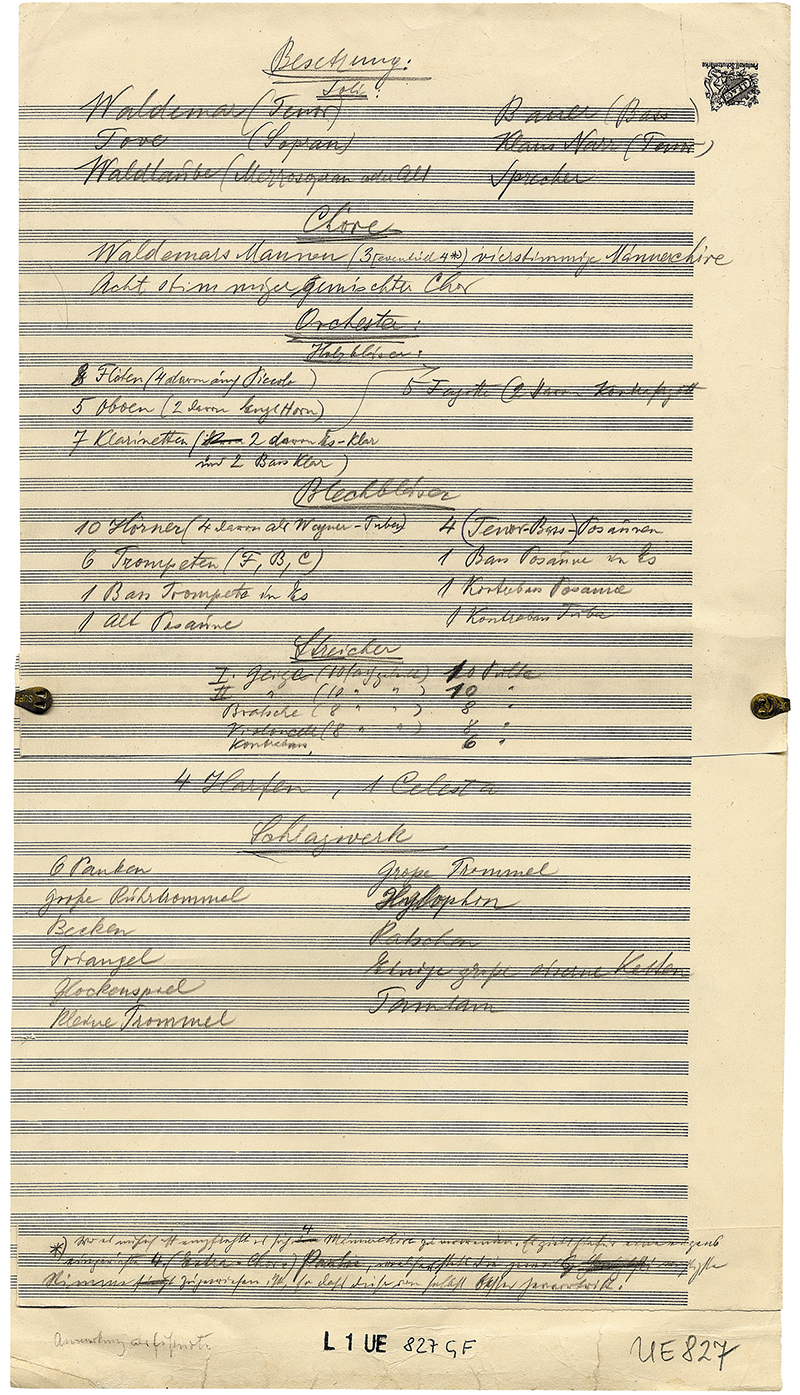 Besetzung:
Soli:
Waldemar (Tenor)
Tove (Sopran)
Waldtaube (Mezzosopran oder Alt
Bauer (Bass)
Klaus Narr (Tenor)
Sprecher
Chöre
Waldemars Mannen (3 (eventuell 4*) vierstimmige Männerchöre
Acht stimmiger gemischter Chor
Orchester:
Holzbläser:
8 Flöten (4 davon auch Piccolo)
5 Oboen (2 davon Engl Horn)
7 Klarinetten (2 davon Es-Klar
und 2 Bass Klar)
5 Fagotte (2 davon Kontrafagott
Blechbläser
10 Hörner (4 davon als Wagner-Tuben)
6 Trompeten (F, B, C)
1 Bass Trompete in Es
1 Alt Posaune
4 (Tenor-Bass-)Posaunen
1 Bass Posaune in Es
1 Kontrabass Posaune
1 Kontrabass Tuba
Streicher
I. Geige (10 fach geteilt) 10 Pulte
II " (10 " " ) 10 "
Bratsche (8 " " ) 8 "
Violoncello (8 " " ) 8 "
Kontrabass 6 "
4 Harfen, 1 Celesta
Schlagwerk
6 Pauken
große Rührtrommel
Becken
Triangel
Glockenspiel
kleine Trommel
große Trommel
Xylophon
Ratschen
Einige große eiserne Ketten
Tamtam
*) Wo es möglich ist empfiehlt es sich 4 Männerchöre zu verwenden.
4 (Extra-Chor)
Stimme zugewiesen ist, so daß diese von selbst besser hervortritt.
L 1 UE 827 GF
UE 827